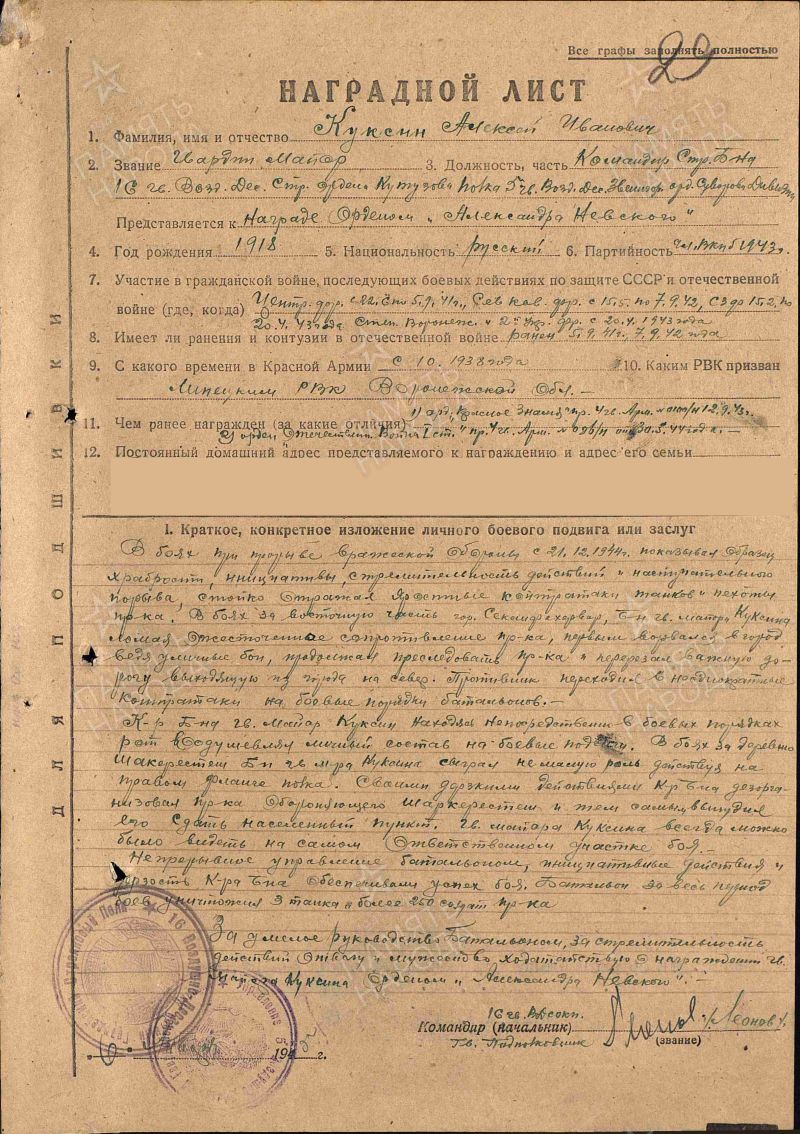 Все графы заполнять полностью
29
НАГРАДНОЙ ЛИСТ
1. Фамилия, имя и отчество Куксин Алексей Иванович
2. Звание Гвардии Майор 3. Должность, часть Командир Стр. Б-на
16 гв. Возд. Дес. Стр. ордена Кутузова полка 5 гв. Возд. Дес. Звенигор. орд. Суворова Дивизии
Представляется к Награде Орденом "Александра Невского"
4. Год рождения 1918 5. Национальность русский 6. Партийность чл. ВКПб 1943 г.
7. Участие в гражданской войне, последующих боевых действиях по защите СССР и отечественной
войне (где, когда) Центр. фр. по 5.9.41г., Сев Кав. фр. с 15.5. по 7.9.42, СЗ фр 15.2. по
20.4.43 года. Степ. Воронеж. и 2й Укр. фр. с 20.4.1943 года
8. Имеет ли ранения и контузии в отечественной войне ранен 5.9.41г., 7.9.42 года
9. С какого времени в Красной Армии с 10.1938 года 10. Каким РВК призван
Липецким РВК Воронежской Обл. –
11. Чем ранее награжден (за какие отличия) 1) орд. Красное Знамя пр. 4 гв. Арм.
2) орден Отечествен. Войны I ст. пр. 4 гв. Арм. 44 года. –
12. Постоянный домашний адрес представляемого к награждению и адрес его семьи
ДЛЯ ПОДШИВКИ
I. Краткое, конкретное изложение личного боевого подвига или заслуг
В боях при прорыве вражеской обороны с 21.12.1944г. показывал образец
храбрости, инициативы, стремительность действий и наступательного
порыва, стойко отражая яростные контратаки танков и пехоты
пр-ка. В боях за восточную часть гор. Секешфехервар, Б-н гв. майора Куксина
ломая ожесточенное сопротивление пр-ка, первым ворвался в город
ведя уличные бои, продолжал преследовать пр-ка и перерезал важную до-
рогу выходящую из города на север. Противник переходил в неоднократные
контратаки на боевые порядки батальонов. –
К-р Б-на гв. Майор Куксин находясь непосредственно в боевых порядках
рот воодушевлял личный состав на боевые подвиги. В боях за деревню
Шакерестеш Б-н гв. м-ра Куксина сыграл не малую роль действуя на
правом фланге полка. Своими дерзкими действиями К-р Б-на дезорга-
низовал пр-ка обороняющего Шаркерестеш и тем самым вынудил
его сдать населенный пункт. Гв. майора Куксина всегда можно
было видеть на самом ответственном участке боя. –
Непрерывное управление батальоном, инициативные действия и
дерзость К-ра Б-на обеспечивали успех боя. Батальон за весь период
боев уничтожил 3 танка и более 260 солдат пр-ка
За умелое руководство Батальоном, за стремительность
действий отвагу и мужество, ходатайствую о награждении гв.
Майора Куксина Орденом "Александра Невского". –
16 гв.
Командир (начальник) Леонов
Гв. Подполковник (звание)
194 г.
ПАМЯТЬ НАРОДА